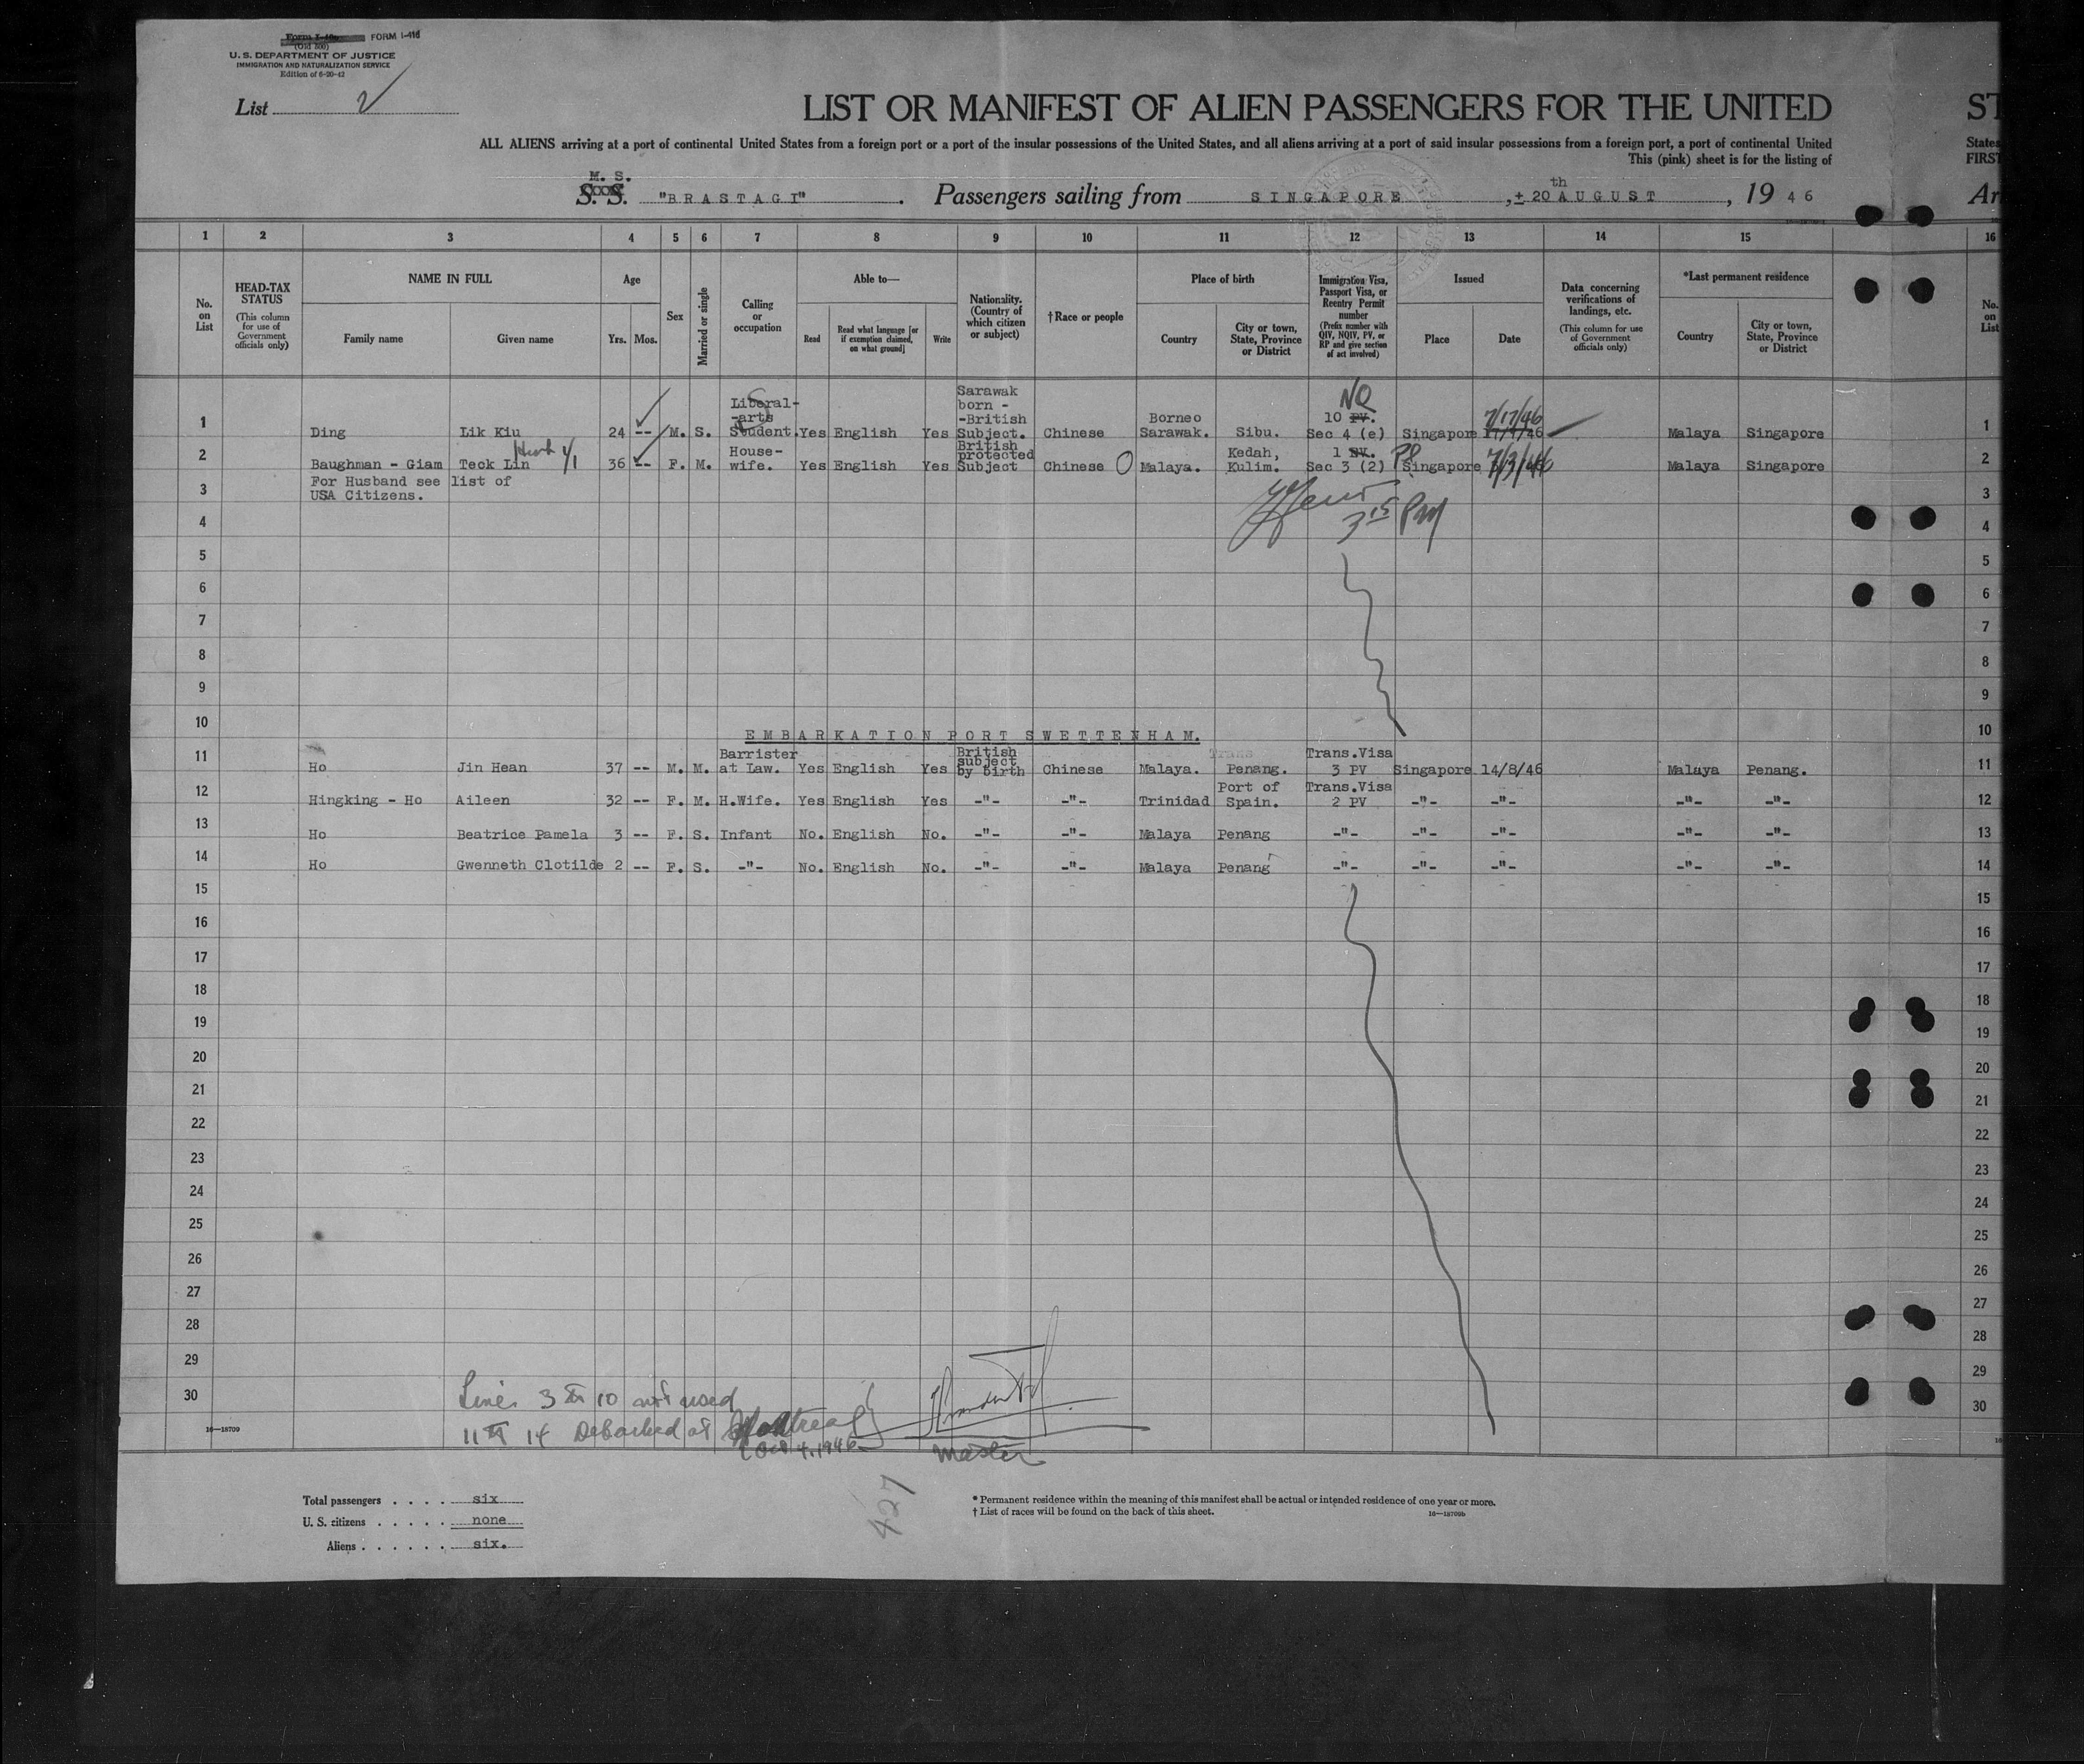 Form I-416 FORM I-416
(Old 500)
U. S. DEPARTMENT OF JUSTICE
IMMIGRATION AND NATURALIZATION SERVICE
Edition of 6-20-42
List 2
LIST OR MANIFEST OF ALIEN PASSENGERS FOR THE UNITED ST
ALL ALIENS arriving at a port of continental United States from a foreign port or a port of the insular possessions of the United States, and all aliens arriving at a port of said insular possessions from a foreign port, a port of continental United States
This (pink) sheet is for the listing of FIRST
M. S.
S. S. "BRASTAGI" . Passengers sailing from SINGAPORE , ± 20th AUGUST , 19 46 Ar
1 2 3 4 5 6 7 8 9 10 11 12 13 14 15 16
No. on List
HEAD-TAX STATUS
(This column for use of Government officials only)
NAME IN FULL
Family name Given name
Age
Yrs. Mos.
Sex
Married or single
Calling or occupation
Able to—
Read Read what language [or if exemption claimed, on what ground] Write
Nationality. (Country of which citizen or subject)
†Race or people
Place of birth
Country City or town, State, Province or District
Immigration Visa, Passport Visa, or Reentry Permit number
(Prefix number with QIV, NQIV, PV, or RP and give section of act involved)
Issued
Place Date
Data concerning verifications of landings, etc.
(This column for use of Government officials only)
*Last permanent residence
Country City or town, State, Province or District
No. on List
1 Ding Lik Kiu 24 -- M. S. Liberal--arts Student. Yes English Yes Sarawak born - -British Subject. Chinese Borneo Sarawak. Sibu. NQ 10 PV. Sec 4 (e) Singapore 7/17/46 Malaya Singapore 1
2 Baughman - Giam Teck Lin 36 -- F. M. House-wife. Yes English Yes British protected Subject Chinese Malaya. Kedah, Kulim. 1 Sec 3 (2) Singapore 7/3/46 Malaya Singapore 2
3 For Husband see list of USA Citizens. 3
315 PM
4 4
5 5
6 6
7 7
8 8
9 9
10 10
EMBARKATION PORT SWETTENHAM.
11 Ho Jin Hean 37 -- M. M. Barrister at Law. Yes English Yes British subject by birth Chinese Malaya. Penang. Trans.Visa 3 PV Singapore 14/8/46 Malaya Penang. 11
12 Hingking - Ho Aileen 32 -- F. M. H.Wife. Yes English Yes -"- -"- Trinidad Port of Spain. Trans.Visa 2 PV -"- -"- -"- -"- 12
13 Ho Beatrice Pamela 3 -- F. S. Infant No. English No. -"- -"- Malaya Penang -"- -"- -"- -"- -"- 13
14 Ho Gwenneth Clotilde 2 -- F. S. -"- No. English No. -"- -"- Malaya Penang -"- -"- -"- -"- -"- 14
15 15
16 16
17 17
18 18
19 19
20 20
21 21
22 22
23 23
24 24
25 25
26 26
27 27
28 28
29 29
30 30
Lines 3 to 10 not used
11 to 14 Debarked at Montreal
Oct 4, 1946
Master
16—18709
427
Total passengers . . . . six
U. S. citizens . . . . . none
Aliens . . . . . . six.
* Permanent residence within the meaning of this manifest shall be actual or intended residence of one year or more.
† List of races will be found on the back of this sheet.
16—18709b